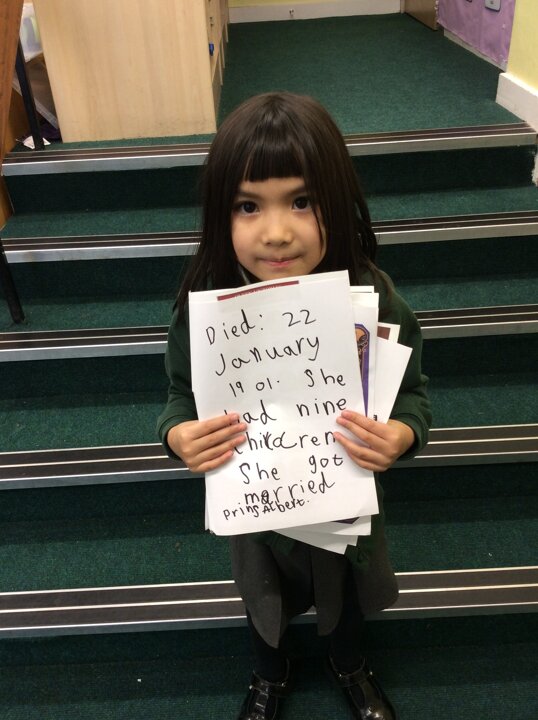 Died: 22
January
1901. She
had nine
children
She got
married
Prins Albert.